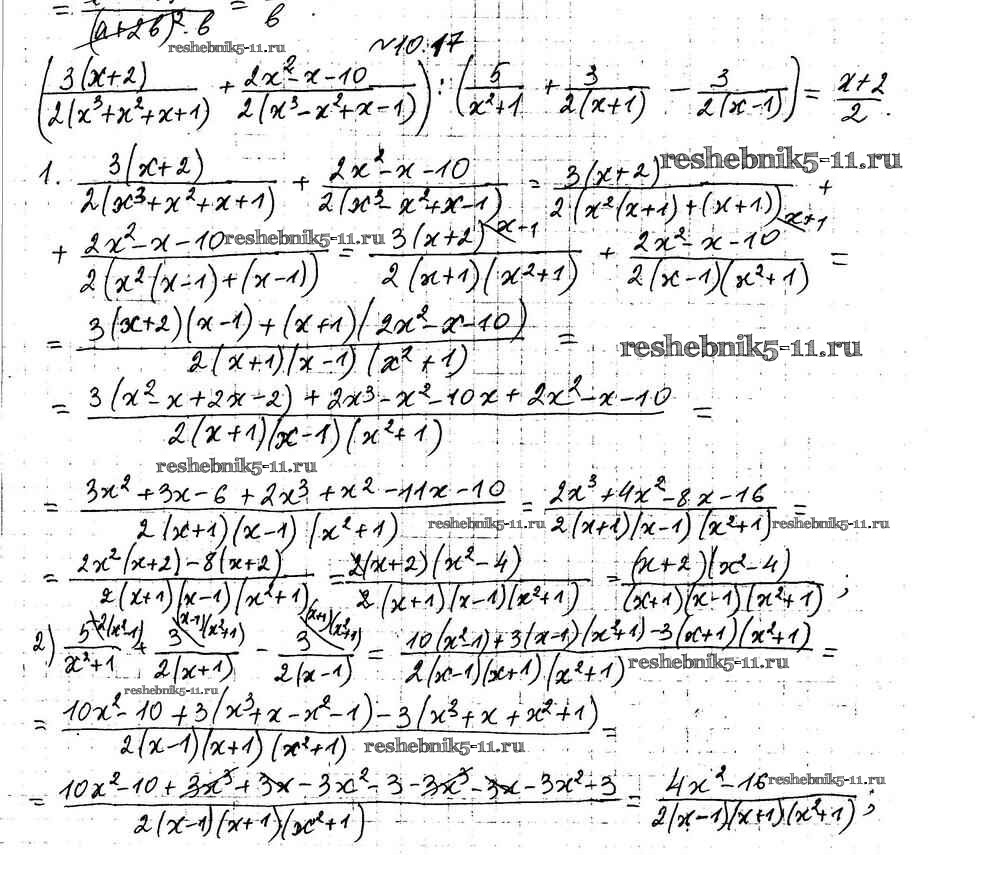 = / (a+2b)²·b = / b .
№10.17
reshebnik5-11.ru
(3(x+2) / 2(x³+x²+x+1) + 2x²-x-10 / 2(x³-x²+x-1)) : (5 / x²+1 + 3 / 2(x+1) - 3 / 2(x-1)) = x+2 / 2.
reshebnik5-11.ru
1. 3(x+2) / 2(x³+x²+x+1) + 2x²-x-10 / 2(x³-x²+x-1) = 3(x+2) / 2(x²(x+1)+(x+1)) +
+ 2x²-x-10 / 2(x²(x-1)+(x-1)) = 3(x+2) \x-1 / 2(x+1)(x²+1) + 2x²-x-10 \x+1 / 2(x-1)(x²+1) =
reshebnik5-11.ru
= 3(x+2)(x-1)+(x+1)(2x²-x-10) / 2(x+1)(x-1)(x²+1) =
reshebnik5-11.ru
= 3(x²-x+2x-2)+2x³-x²-10x+2x²-x-10 / 2(x+1)(x-1)(x²+1) =
reshebnik5-11.ru
= 3x²+3x-6+2x³+x²-11x-10 / 2(x+1)(x-1)(x²+1) = 2x³+4x²-8x-16 / 2(x+1)(x-1)(x²+1) =
reshebnik5-11.ru reshebnik5-11.ru
= 2x²(x+2)-8(x+2) / 2(x+1)(x-1)(x²+1) = 2(x+2)(x²-4) / 2(x+1)(x-1)(x²+1) = (x+2)(x²-4) / (x+1)(x-1)(x²+1) ;
2) 5 \2(x²-1) / x²+1 + 3 \(x-1)(x²+1) / 2(x+1) - 3 \(x+1)(x²+1) / 2(x-1) = 10(x²-1)+3(x-1)(x²+1)-3(x+1)(x²+1) / 2(x-1)(x+1)(x²+1) =
reshebnik5-11.ru
reshebnik5-11.ru
= 10x²-10+3(x³+x-x²-1)-3(x³+x+x²+1) / 2(x-1)(x+1)(x²+1) =
reshebnik5-11.ru
= 10x²-10+3x³+3x-3x²-3-3x³-3x-3x²+3 / 2(x-1)(x+1)(x²+1) = 4x²-16 / 2(x-1)(x+1)(x²+1) ;
reshebnik5-11.ru